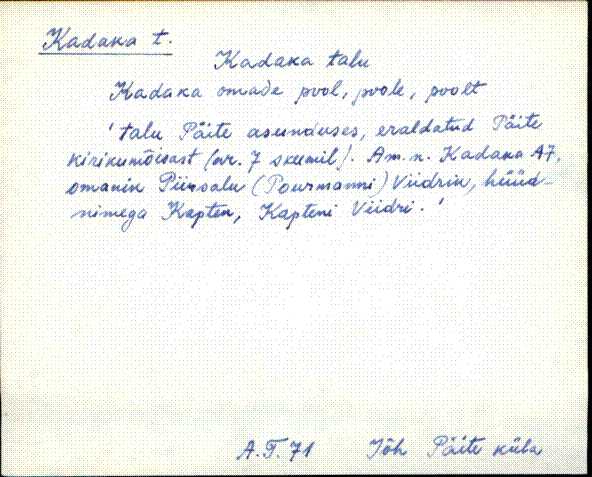 Kadaka t.
Kadaka talu
Kadaka omade pool, poole, poolt
'talu Päite asunduses, eraldatud Päite
kirikumõisast (nr. 7 skeemil). Am. n. Kadaka A7,
omanik Piirsalu (Puurmanni) Viidrik, hüüd-
nimega Kapten, Kapteni Viidri.'
A.T. 71 Jõh Päite küla